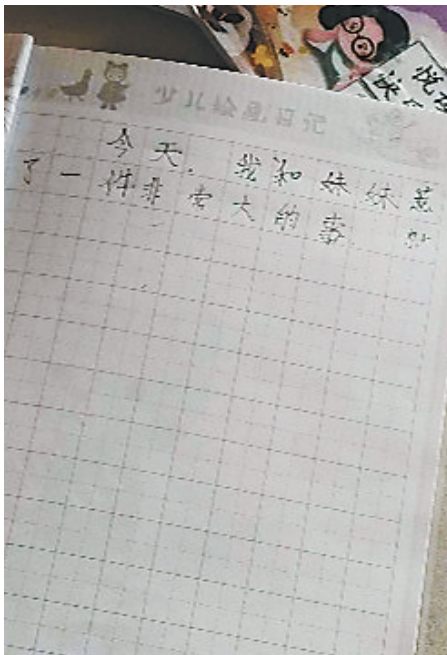 悦
快
少儿绘画日记
今天,我和妹妹惹
了一件非常大的事